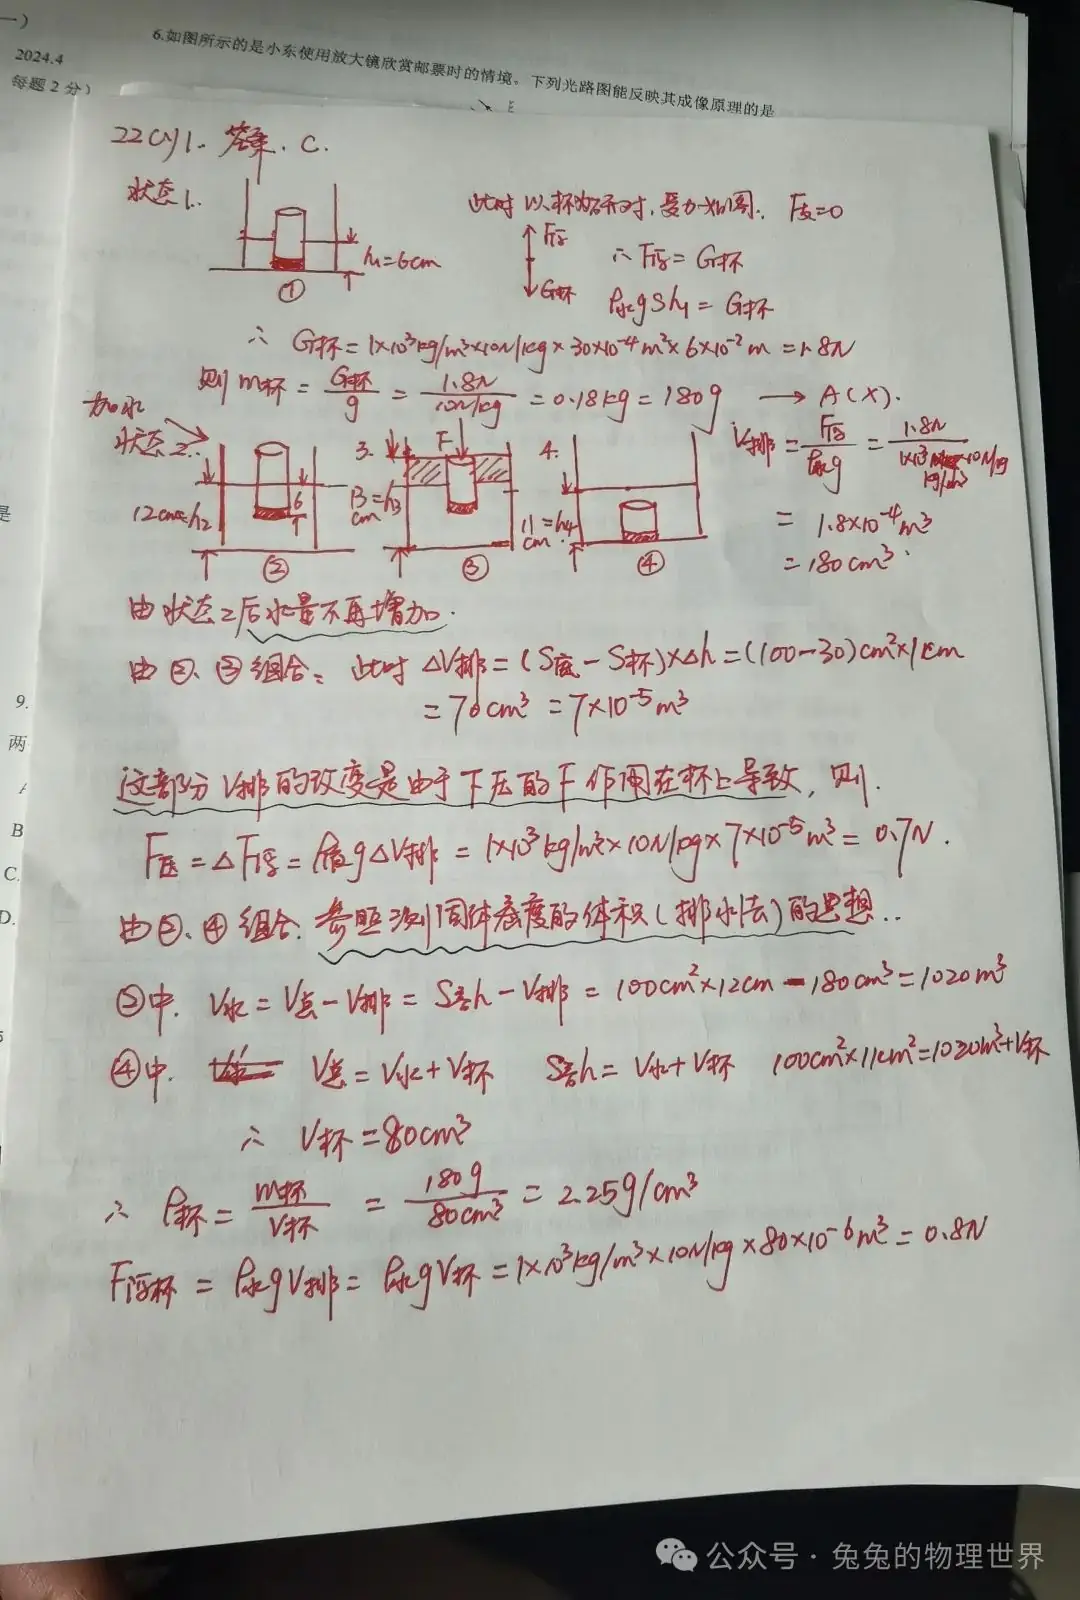 一)
2024.4
每题2分)
6.如图所示的是小东使用放大镜欣赏邮票时的情境。下列光路图能反映其成像原理的是
22(y)1. 答案. C.
状态1.
h₁=6cm
①
此时以杯为研对, 受力如图. F支=0
F浮
G杯
∴ F浮=G杯
ρ水gSh₁=G杯
∴ G杯=1×10³kg/m³×10N/kg×30×10⁻⁴m²×6×10⁻²m=1.8N
则 m杯=G杯/g=1.8N/10N/kg=0.18kg=180g → A(X).
加水
状态2.
12cm=h₂
6
②
3.
F
13cm=h₃
③
4.
11cm=h₄
④
V排=F浮/ρ水g=1.8N/1×10³kg/m³×10N/kg
=1.8×10⁻⁴m³
=180cm³.
由状态2后水量不再增加.
由②、③组合: 此时 ΔV排=(S底-S杯)×Δh=(100-30)cm²×1cm
=70cm³=7×10⁻⁵m³
这部分V排的改变是由于下压的F作用在杯上导致, 则.
F压=ΔF浮=ρ液gΔV排=1×10³kg/m³×10N/kg×7×10⁻⁵m³=0.7N.
由②、④组合. 参照测固体密度的体积(排水法)的思想..
②中. V水=V总-V排=S容h-V排=100cm²×12cm-180cm³=1020m³
④中. V总=V水+V杯 S容h=V水+V杯 100cm²×11cm²=1020m³+V杯
∴ V杯=80cm³
∴ ρ杯=m杯/V杯=180g/80cm³=2.25g/cm³
F浮杯=ρ水gV排=ρ水gV杯=1×10³kg/m³×10N/kg×80×10⁻⁶m³=0.8N
是
9.
两
B
C.
D.
公众号·兔兔的物理世界